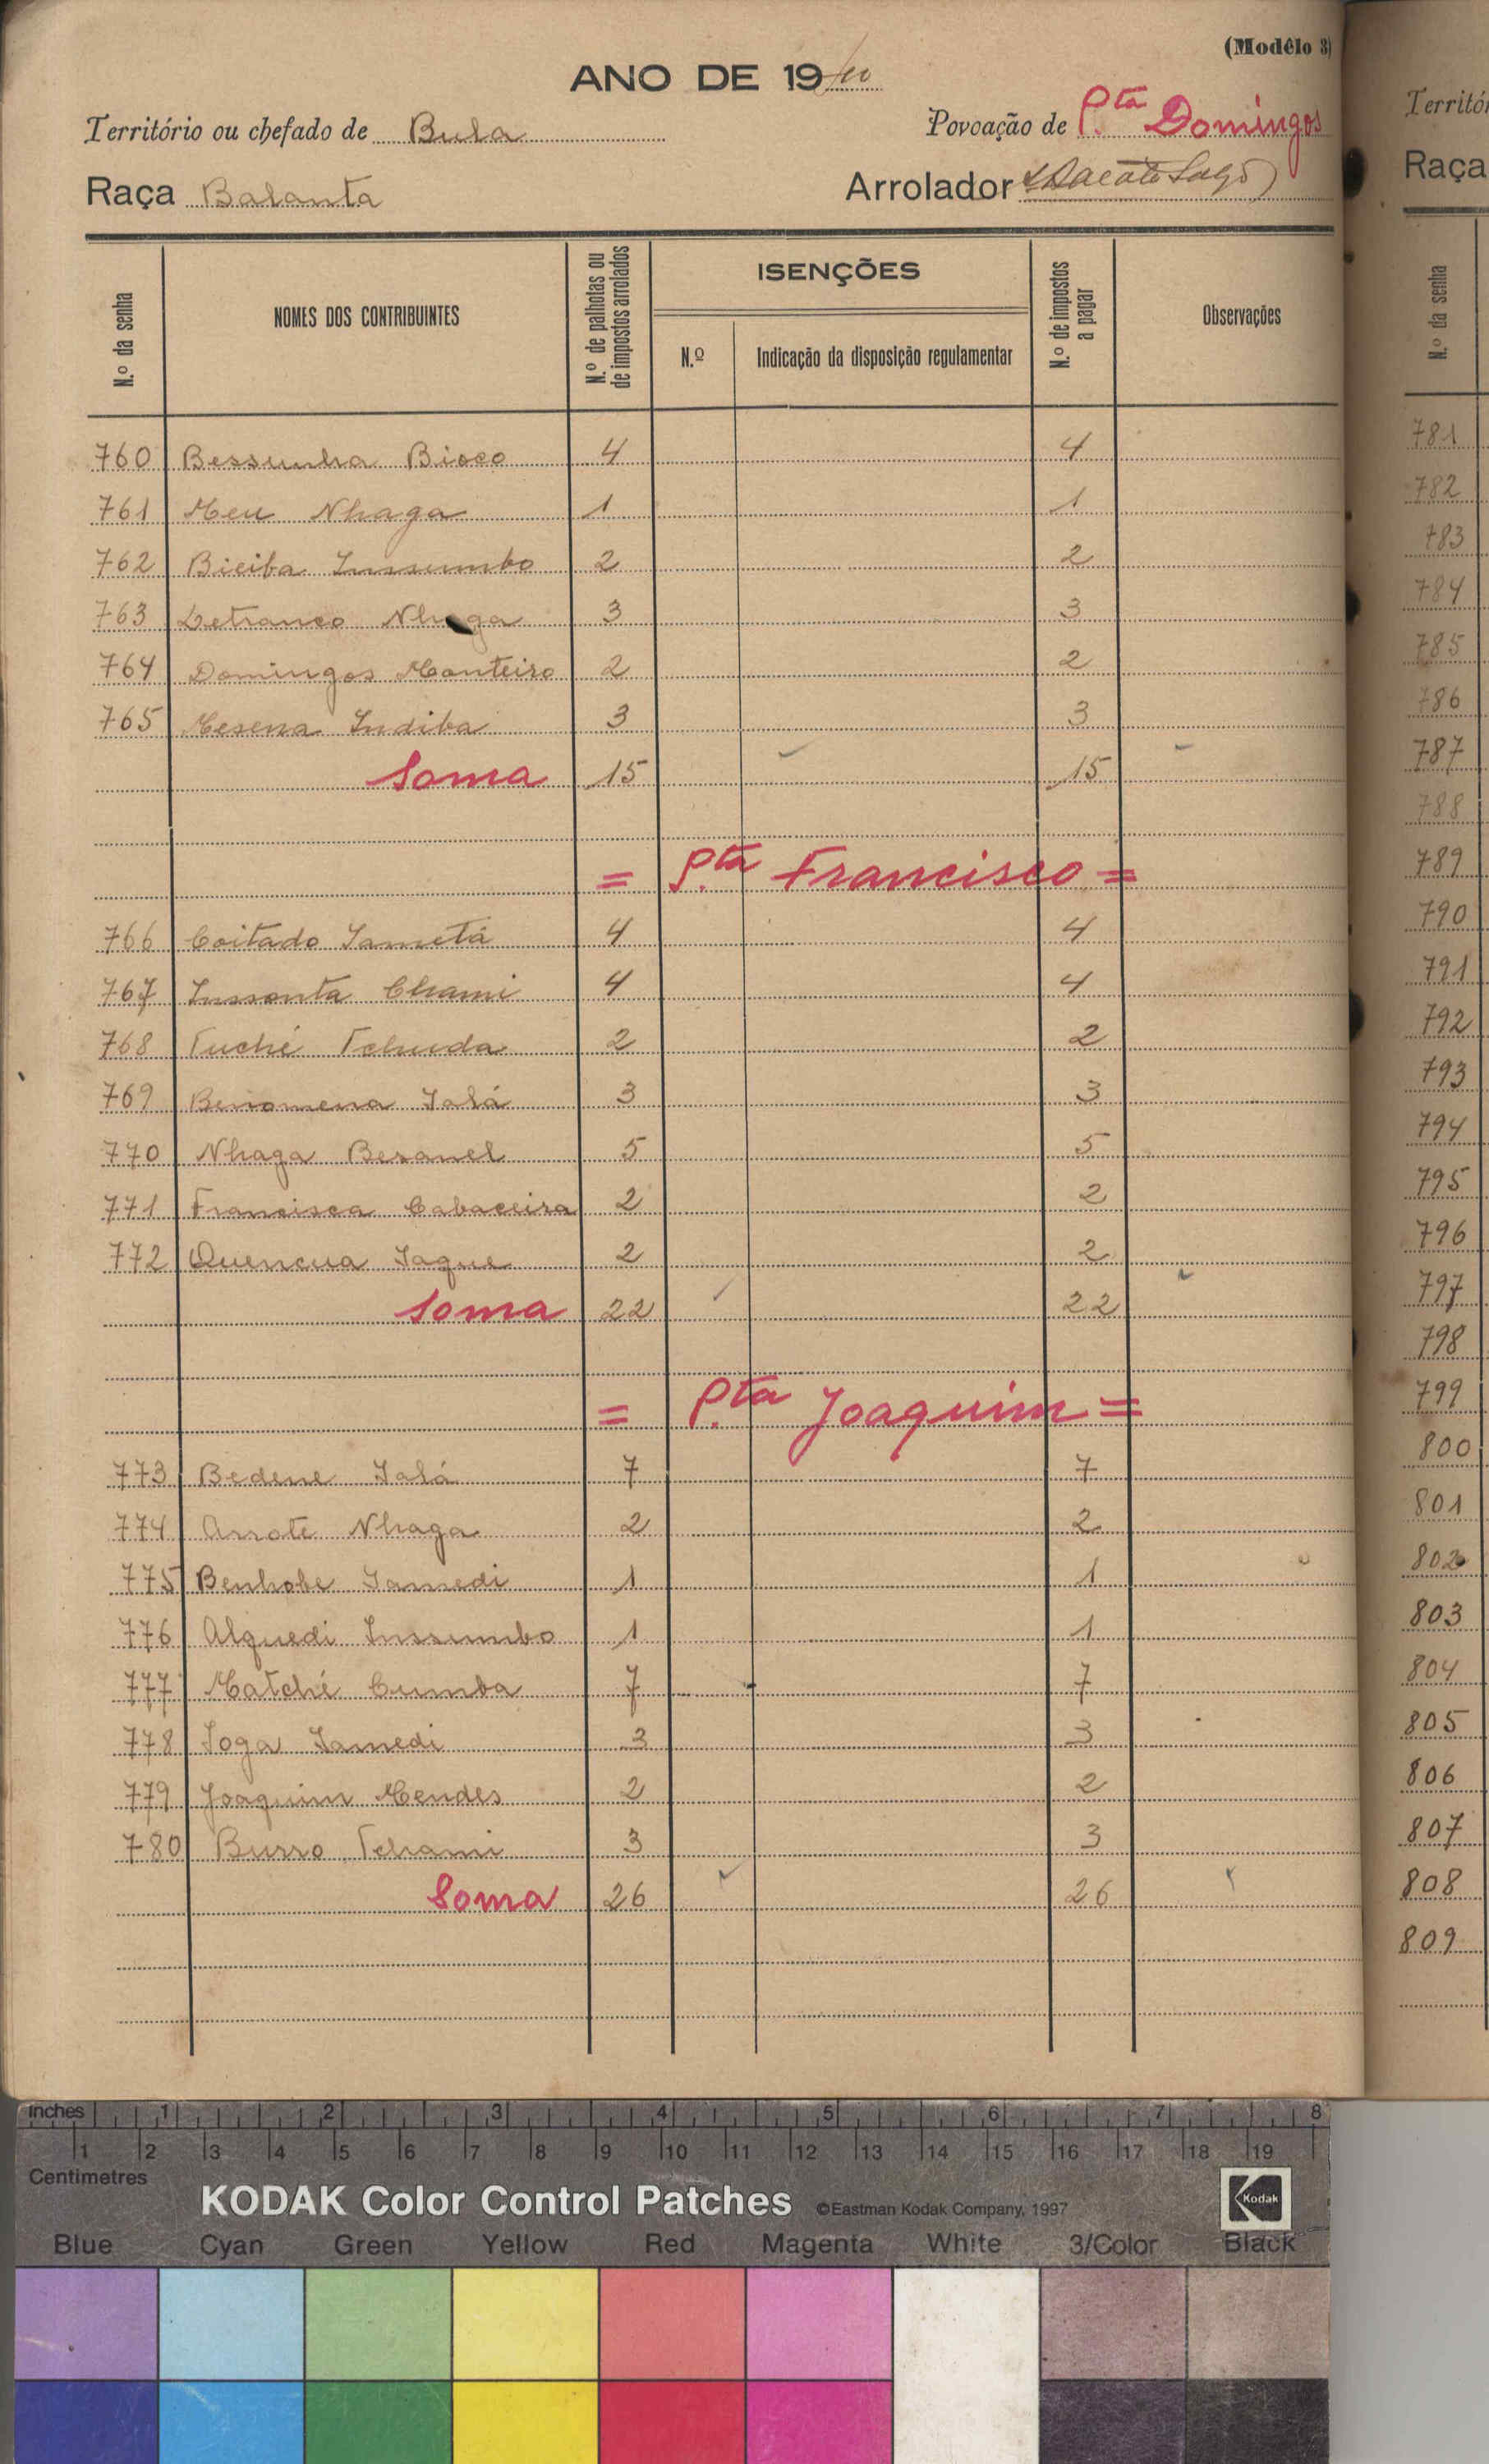 (Modêlo 3)
ANO DE 19
Território ou chefado de Bula
Povoação de P.ta Domingos
Raça Balanta
Arrolador
N.º da senha
NOMES DOS CONTRIBUINTES
N.º de palhotas ou de impostos arrolados
ISENÇÕES
N.º
Indicação da disposição regulamentar
N.º de impostos a pagar
Observações
760 Bessunha Bioco 4 4
761 Meu Nhaga 1 1
762 Bieiba Inssumbo 2 2
763 Nhaga 3 3
764 Domingos Monteiro 2 2
765 Mesena Indiba 3 3
Soma 15 15
= P.ta Francisco =
766 Coitado Sametá 4 4
767 Inssonta Chami 4 4
768 Tuché Tchuda 2 2
769 Benomena Ialá 3 3
770 Nhaga Besanel 5 5
771 Francisca Cabaceira 2 2
772 Quencua Iaque 2 2
Soma 22 22
= P.ta Joaquim =
773 Bedene Ialá 7 7
774 Arrote Nhaga 2 2
775 Benhobe Samedi 1 1
776 Alquedi Inssumbo 1 1
777 Matché Cumba 7 7
778 Ioga Samedi 3 3
779 Joaquim Mendes 2 2
780 Burro Tchami 3 3
Soma 26 26
Territó
Raça
N.º da senha
781
782
783
784
785
786
787
788
789
790
791
792
793
794
795
796
797
798
799
800
801
802
803
804
805
806
807
808
809
inches 1 2 3 4 5 6 7 8
1 2 3 4 5 6 7 8 9 10 11 12 13 14 15 16 17 18 19
Centimetres
KODAK Color Control Patches ©Eastman Kodak Company, 1997 Kodak
Blue Cyan Green Yellow Red Magenta White 3/Color Black